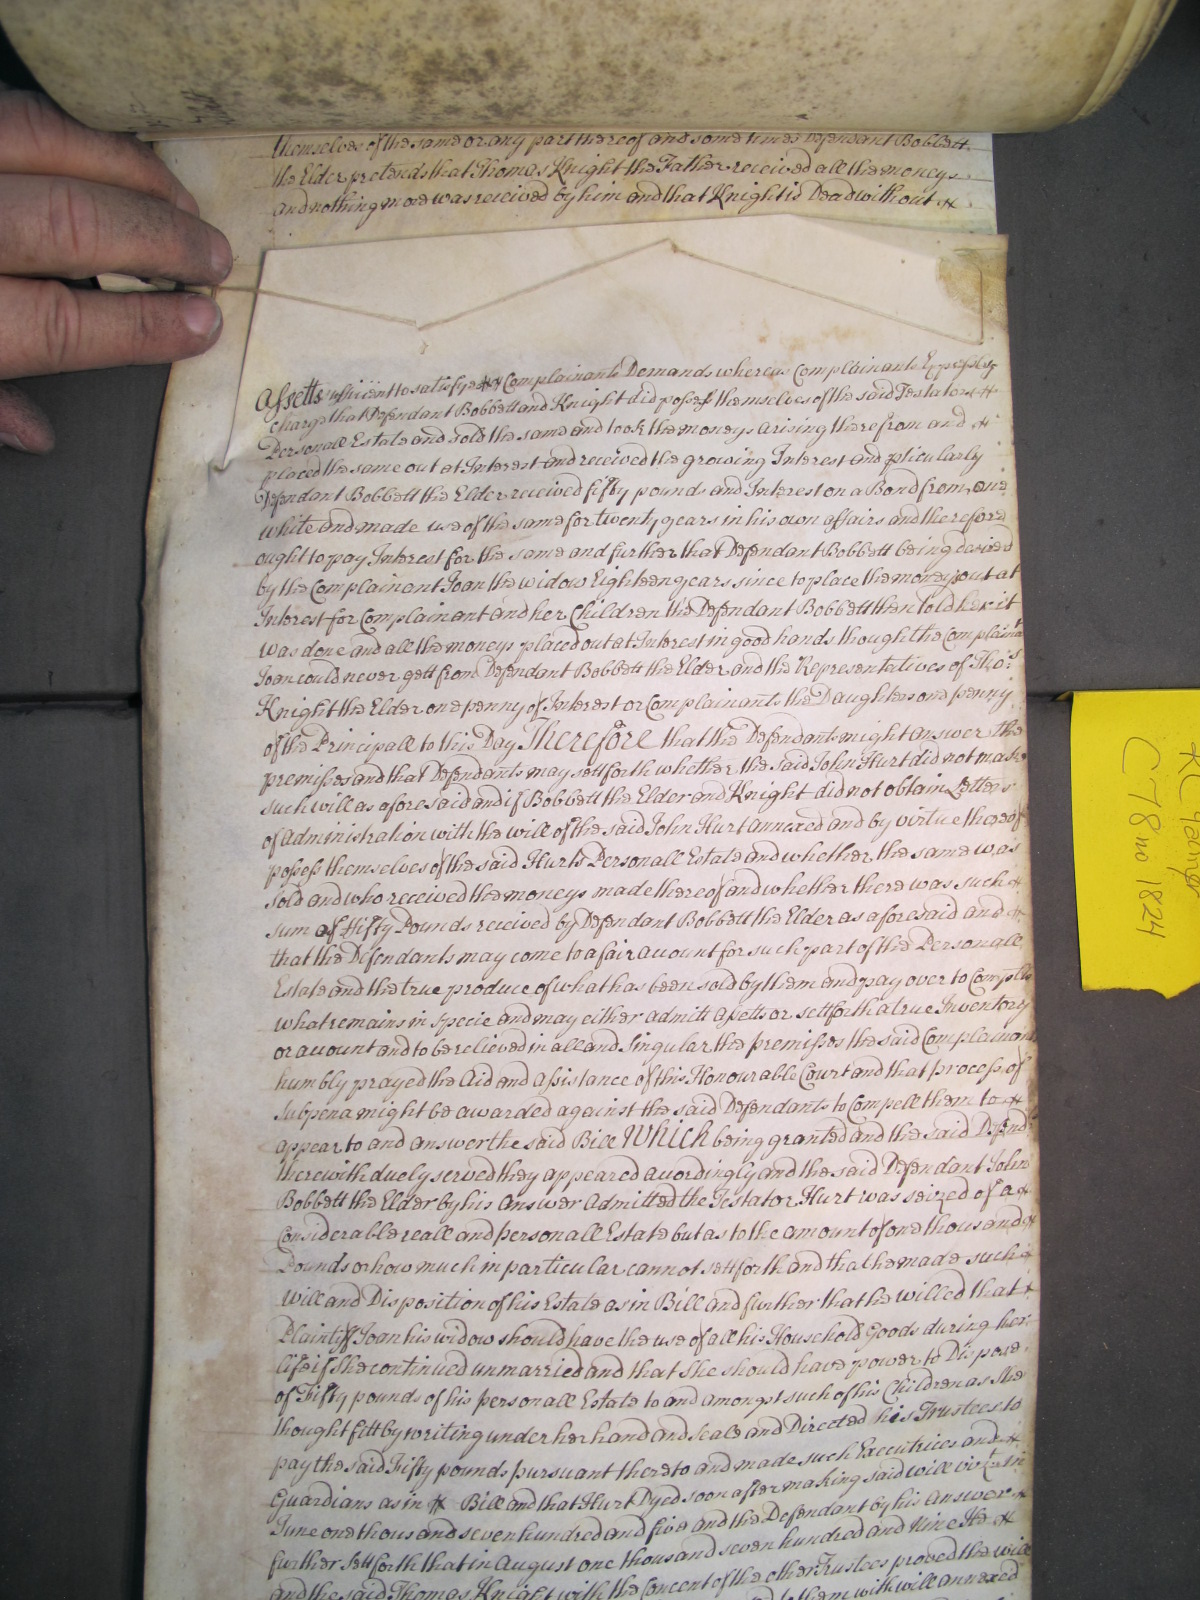 themselves of the same or any part thereof and some times Defendant Bobbett
the Elder pretends that Thomas Knight the Father received all the moneys
and nothing more was received by him and that Knight is Dead without
Assetts sufficient to satisfye Complainants Demands whereas Complainants Expressly
charge that Defendant Bobbett and Knight did possess themselves of the said Testators
Personall Estate and sold the same and took the moneys arising therefrom and
placed the same out at Interest and received the growing Interest and pticularly
Defendant Bobbett the Elder received fifty pounds and Interest on a Bond from one
white and made use of the same for twenty years in his own affairs and therefore
ought to pay Interest for the same and further that Defendant Bobbett being desired
by the Complainant Joan the widow Eighteen years since to place the moneys out at
Interest for Complainant and her Children the Defendant Bobbett then told her it
was done and all the moneys placed out at Interest in good hands though the Complaint
Joan could never gett from Defendant Bobbett the Elder and the Representatives of Tho:s
Knight the Elder one penny of Interest or Complainants the Daughters one penny
of the Principall to this Day Therefore that the Defendants might answer the
premisses and that Defendants may sett forth whether the said John Hurt did not make
such will as aforesaid and if Bobbett the Elder and Knight did not obtain Letters
of Administration with the will of the said John Hurt annexed and by virtue thereof
possess themselves of the said Hurts Personall Estate and whether the same was
sold and who received the moneys made thereof and whether there was such
sum of fifty Pounds received by Defendant Bobbett the Elder as aforesaid and
that the Defendants may come to a fair account for such part of the Personall
Estate and the true produce of what has been sold by them and pay over to Complts
what remains in specie and may either admitt assetts or sett forth a true Inventory
or account and to be relieved in all and Singular the premisses the said Complainants
humbly prayed the Aid and Assistance of this Honourable Court and that process of
Subpena might be awarded against the said Defendants to Compell them to
appear to and answer the said Bill Which being granted and the said Defend
therewith duely served they appeared accordingly and the said Defendant John
Bobbett the Elder by his answer Admitted the Testator Hurt was seized of a
Considerable reall and personall Estate but as to the amount of one thousand
Pounds or how much in particular cannot sett forth and that he made such
Will and Disposition of his Estate as in Bill and further that he willed that
Plaintiff Joan his widow should have the use of all his Household Goods during her
life if she continued unmarried and that she should have power to Dispose
of Fifty pounds of his personall Estate to and amongst such of his Children as she
thought fitt by writing under her hand and seale and Directed his Trustees to
pay the said Fifty pounds pursuant thereto and made such Executrices and
Guardians as in Bill and that Hurt Dyed soon after making said will in
June one thousand seven hundred and five and the Defendant by his Answer
further sett forth that in August one thousand seven hundred and nine He
and the said Thomas Knight with the Concent of the other Trustees proved the will
them with will annexed
RC
C78 no 1824